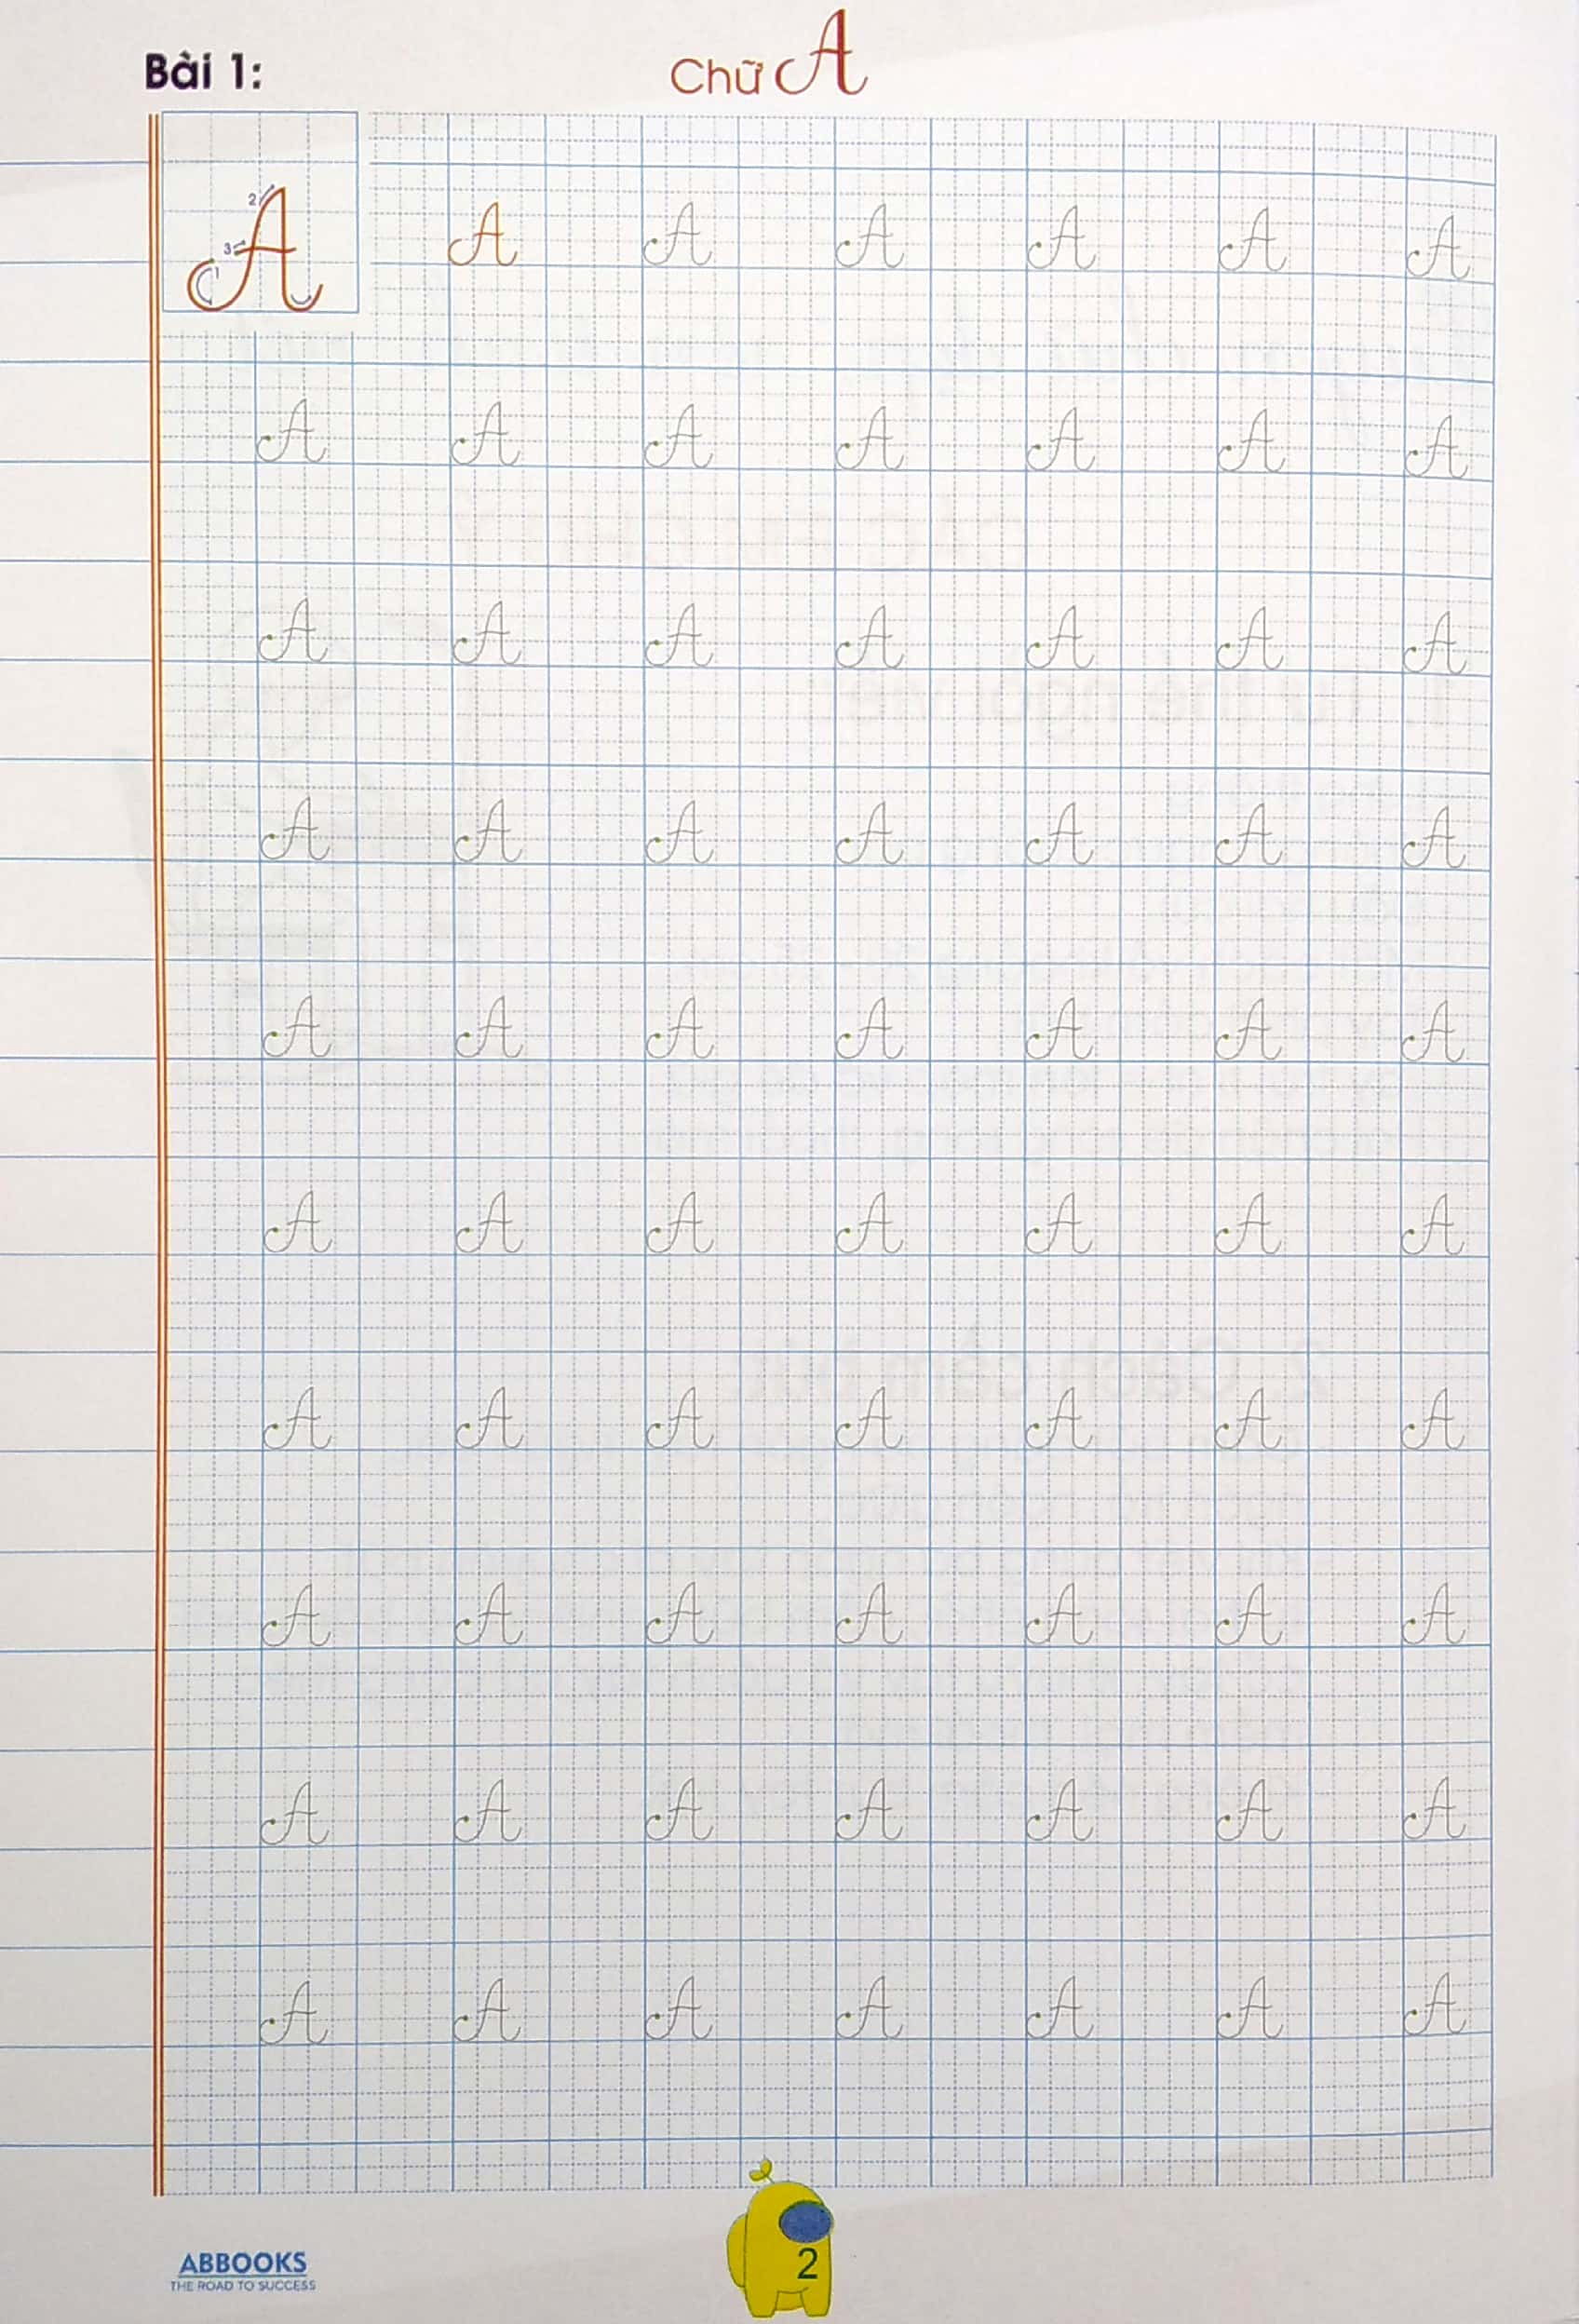 Bài 1:
Chữ A
2
3
1
A
A A A A A A
A A A A A A A
A A A A A A A
A A A A A A A
A A A A A A A
A A A A A A A
A A A A A A A
A A A A A A A
A A A A A A A
A A A A A A A
2
ABBOOKS
THE ROAD TO SUCCESS